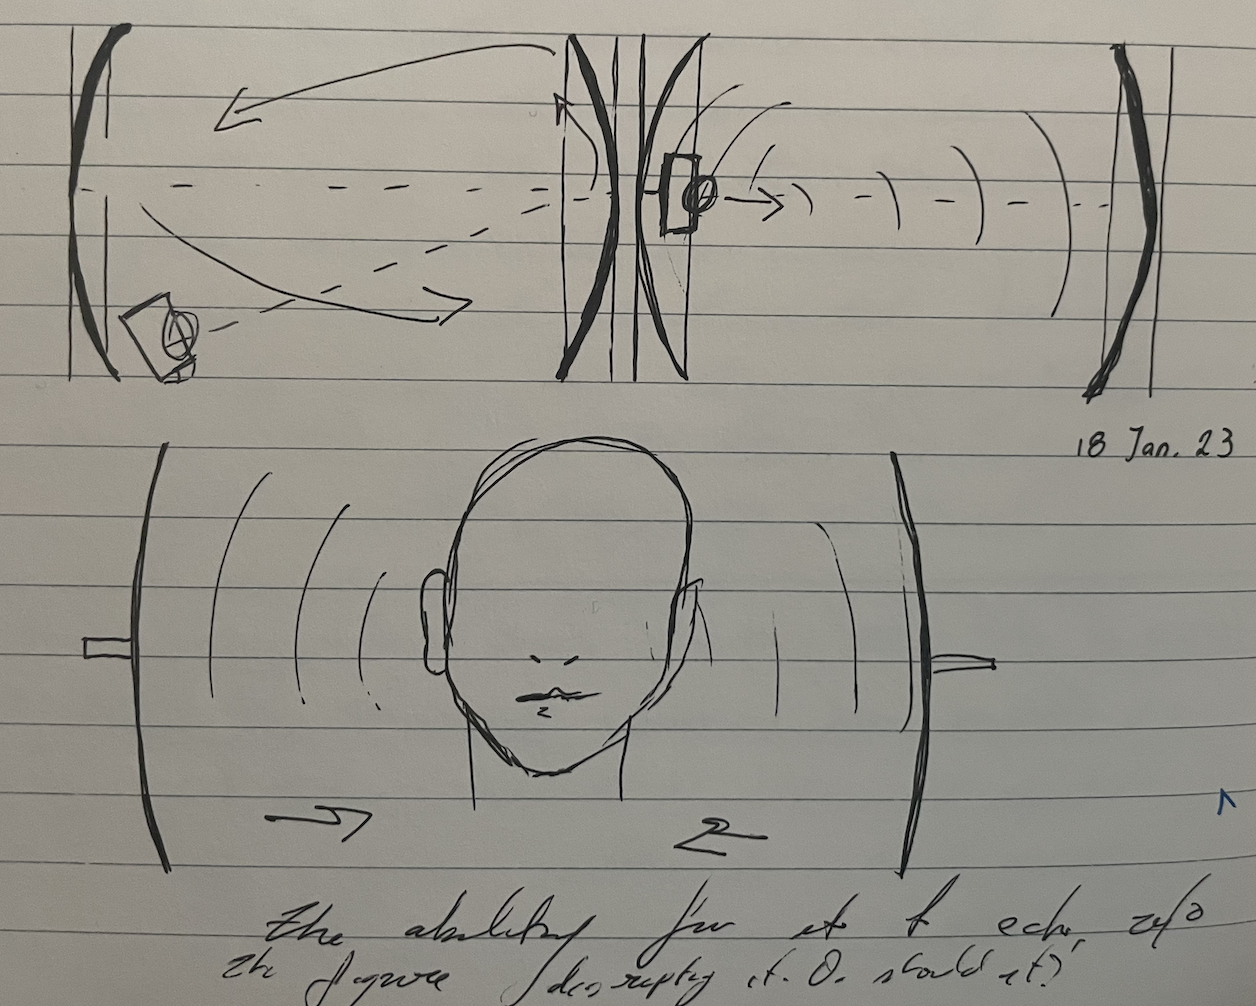 18 Jan. 23
The ability for it to echo, w/o
the figure disrupting it. Or should it?